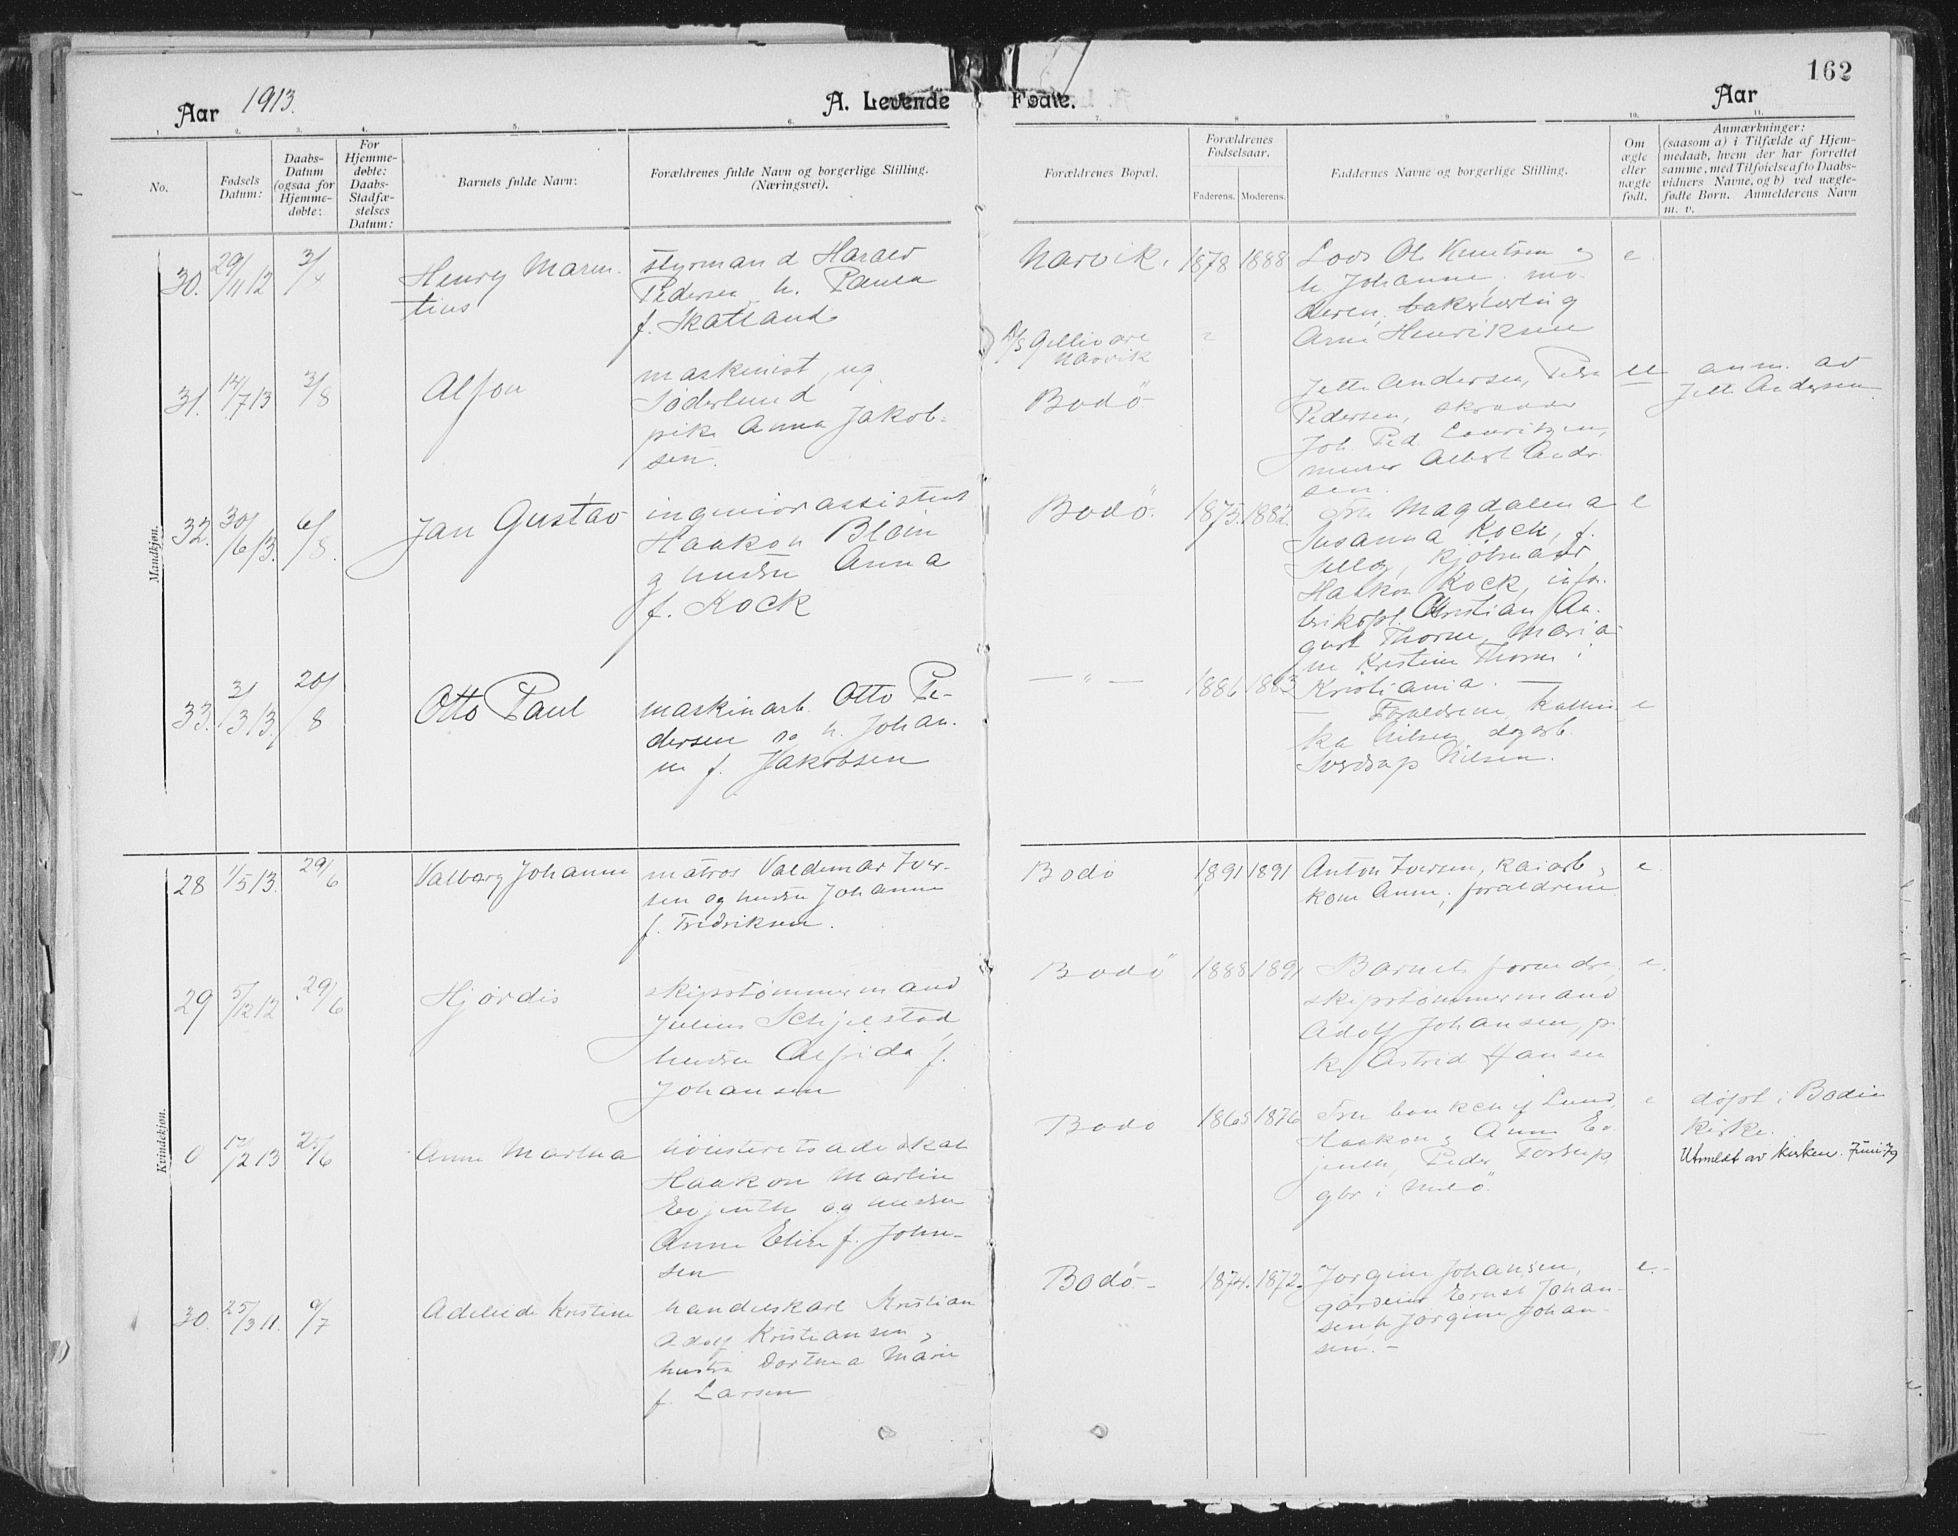 162
Aar 1913.
A. Levende Fødte.
Aar
1. 2. 3. 4. 5. 6. 7. 8. 9. 10. 11.
No.
Fødsels Datum:
Daabs-
Datum
(ogsaa for
Hjemme-
døbte:
For
Hjemme-
døbte:
Daabs-
Stadfæ-
stelses
Datum:
Barnets fulde Navn:
Forældrenes fulde Navn og borgerlige Stilling.
(Næringsvei).
Forældrenes Bopæl.
Forældrenes
Fødselsaar.
Faderens. Moderens.
Faddernes Navne og borgerlige Stilling.
Om
ægte
eller
uægte
født.
Anmærkninger:
(saasom a) i Tilfælde af Hjem-
medaab, hvem der har forrettet
samme, med Tilføielse af to Daabs-
vidners Navne, og b) ved uægte-
fødte Børn. Anmelderens Navn
m. v.
Mandkjøn.
30. 29/11 12
Henry Maren-
tius
styrmand Harald
Pedersen, h. Paula
f. Skatland
Narvik. 1878 1888
Lods Ol. Knutsen og
h. Johanne, mo-
deren,
Arne Henriksen
e.
31. 14/7 13 3/8
Alfon
maskinist, ug.
Söderlund
pike Anna Jakob-
sen.
Gellivare
Narvik
Bodö
Jette Andersen,
Pedersen, skrædder
Joh. Ped. Lauritzen,
murer Albert Andr-
sen.
u
anm. av
Jett Andersen
32. 30/6 13. 6/8.
Jan Gustav
ingeniörassistent
Haakon Blom
og hustru Anna
f. Kock
Bodö. 1875. 1882.
Fru Magdalena
Susanna Kock, f.
kjöbmand
Haakon Kock,
Kristian Au-
gust Thorne, Maria-
ne Kristine Thorne i
Kristiania.
e
33. 3/3 13. 20/8
Otto Paul
maskinarb. Otto Pe-
dersen og h. Johan-
ne f. Jakobsen
— " — 1886 1883
Forældrene,
Nilsen, dagarb.
Sverdrup Nilsen.
e
Kvindekjøn.
28 1/5 13. 29/6
Valborg Johanne
matros Valdemar Iver-
sen og hustru Johanne
f. Fredriksen.
Bodö 1891 1891
Anton Iversen, kaiarb.,
kone Anne, forældrene
e.
29 5/12 12 29/6
Hjördis
skipstömmermand
Julius Schjelstad,
hustru Alfrida f.
Johansen
Bodö 1888 1891
Barnets forældre,
skipstömmermand
Adolf Johansen, pi-
ke Astrid Hansen
e.
0 17/2 13 25/6
Anne Martha
höiesteretsadvokat
Haakon Martin
Evjenth og hustru
Anne Elise f. John-
sen
Bodö 1865 1876
Fru Lund,
Haakon og Anne Ev-
jenth, Peder
gbr i
e
döpt i Bodin
kirke.
Utmeldt av kirken. Juni 79
30. 25/3 11. 9/7
Adeleide Kristine
handelskarl Kristian
Adolf Kristiansen,
hustru Dorthea Marie
f. Larsen
Bodö 1874. 1872.
Jörgine Johansen,
gårdeier Ernst Johan-
sen h Jörgine Johan-
sen. -
e.